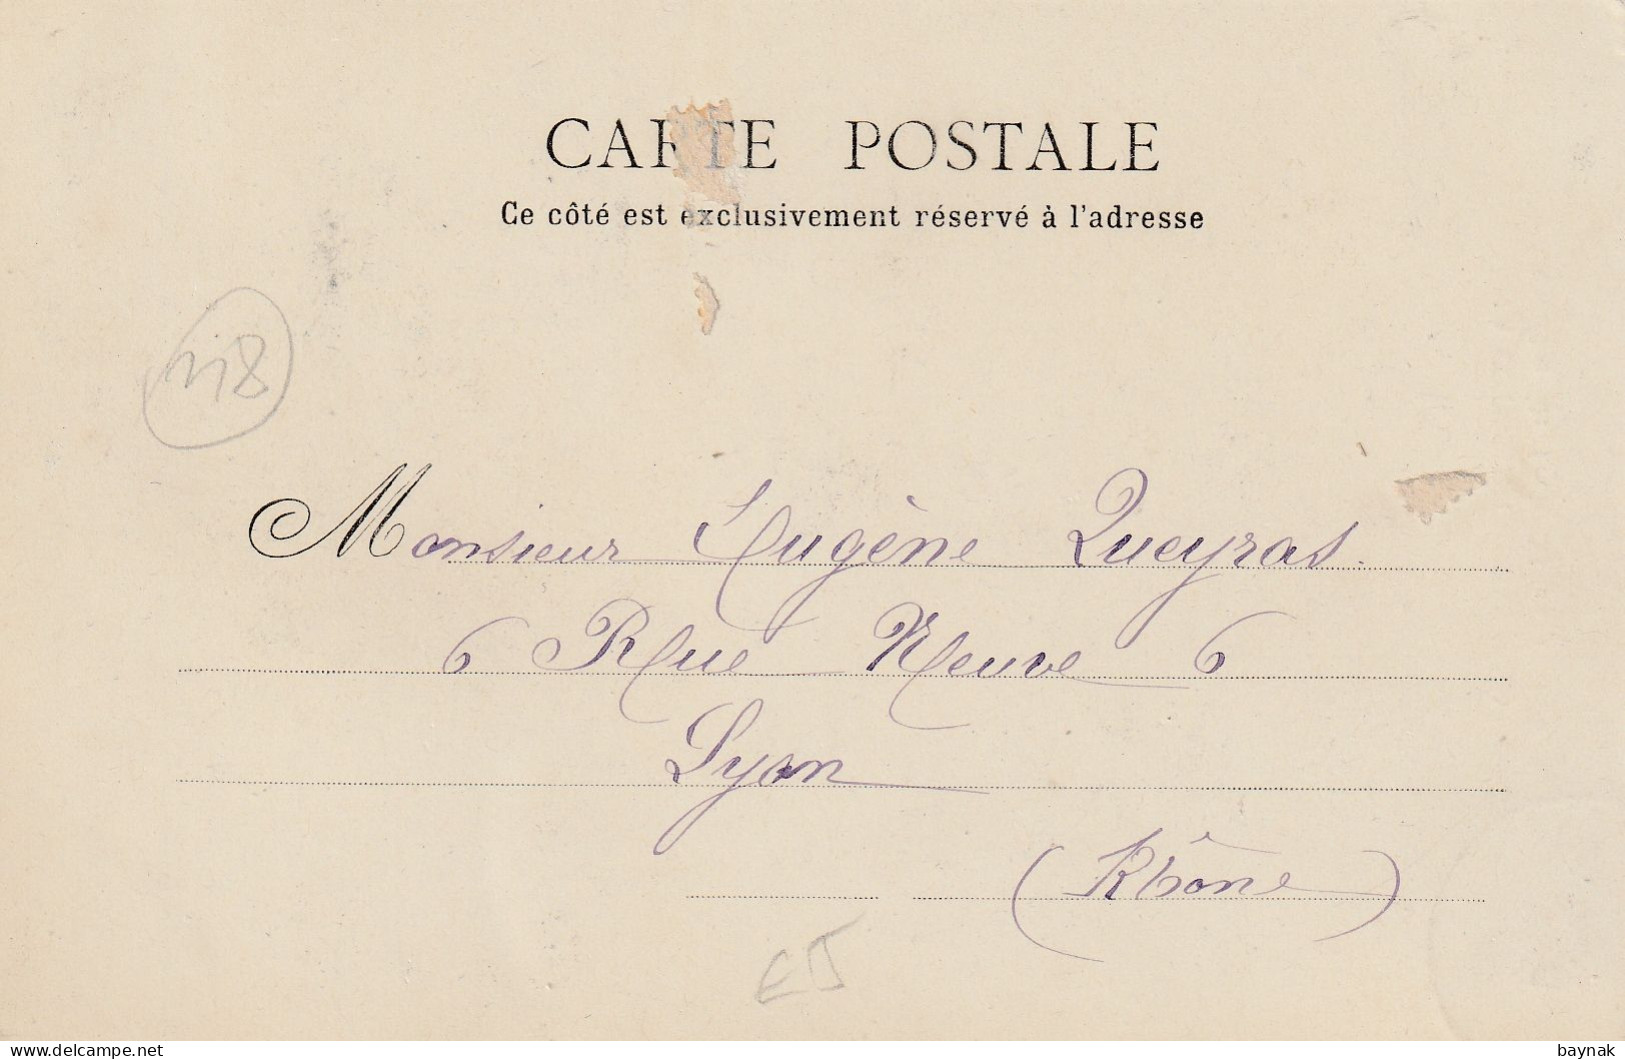 CARTE POSTALE
Ce côté est exclusivement réservé à l'adresse
Monsieur Eugène Queyras.
6 Rue Neuve 6
Lyon
(Rhône)
EJ
baynak